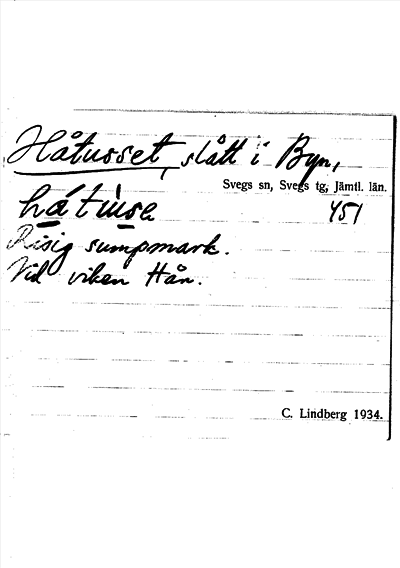 Håtusset, slått i Byn,
Svegs sn, Svegs tg, Jämtl. län.
hátùsa 451
Risig sumpmark.
Vid viken Hån.
C. Lindberg 1934.